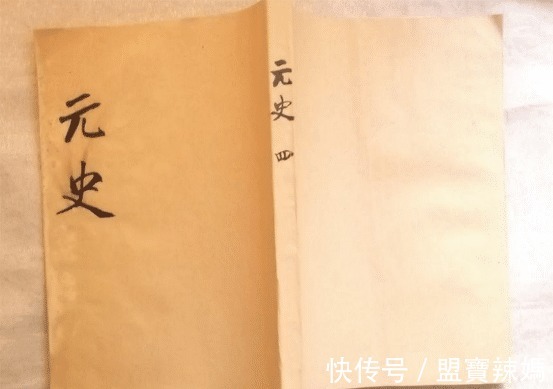 元史
元史 四
快传号 / 盟寶辣媽